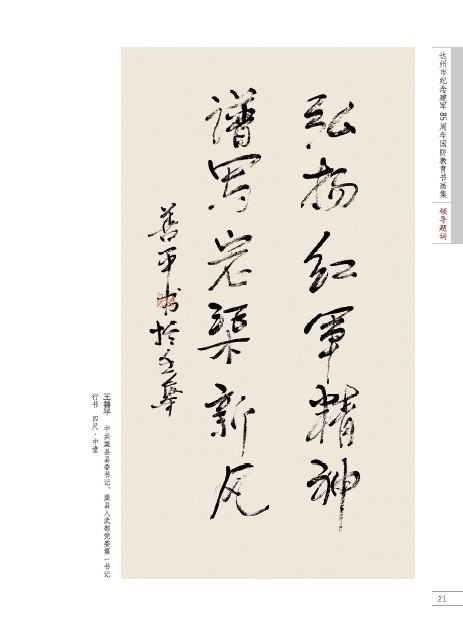 达州市纪念建军85周年国防教育书画集
领导题词
弘扬红军精神
谱写宕渠新风
善平书于
王善平 中共渠县县委书记、渠县人武部党委第一书记
行书 四尺·中堂
21